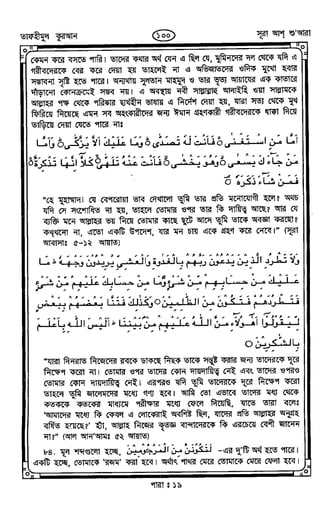 তাফহীমুল কুরআন
১০০
সূরা আশ্ শু'আরা
কেমন করে বসতে পারি। তাদের কথার অর্থ যেন এ ছিল যে, মুমিনদের দল থেকে যদি এ
গরীবদেরকে বের করে দেয়া হয় তাহলেই না এ অভিজাতদের ওদিক মুখো হবার
সম্ভাবনা সৃষ্টি হতে পারে। অন্যথায় সুলতান মাহমুদ ও তার ভৃত্য আয়াযের এক কাতারে
দাঁড়ানো কোনক্রমেই সম্ভব নয়। এ অবস্থায় নবী সাল্লাল্লাহু আলাইহি ওয়া সাল্লামকে
আল্লাহর পক্ষ থেকে পরিষ্কার দ্ব্যর্থহীন ভাষায় এ নির্দেশ দেয়া হয়, যারা সত্য থেকে মুখ
ফিরিয়ে নিয়েছে এমন সব অহংকারীদের জন্য ঈমান গ্রহণকারী গরীবদেরকে ধাক্কা দিয়ে
তাড়িয়ে দেয়া যেতে পারে নাঃ
أَمَّا مَنِ اسْتَغْنٰى ۝ فَأَنْتَ لَهٗ تَصَدّٰى ۝ وَمَا عَلَيْكَ أَلَّا يَزَّكّٰى ۝ وَأَمَّا
مَنْ جَاءَكَ يَسْعٰى ۝ وَهُوَ يَخْشٰى ۝ فَأَنْتَ عَنْهُ تَلَهّٰى ۝ كَلَّا إِنَّهَا تَذْكِرَةٌ ۝
فَمَنْ شَاءَ ذَكَرَهٗ ۝
"হে মুহাম্মাদ! যে বেপরোয়া ভাব দেখালো তুমি তার প্রতি মনোযোগী হলে। অথচ
যদি সে সংশোধিত না হয়, তাহলে তোমার ওপর তার কি দায়িত্ব আছে? আর যে
ব্যক্তি মনে আল্লাহর ভয় নিয়ে তোমার কাছে ছুটে আসে তুমি তাকে অবজ্ঞা করছো?
কক্ষণো না, এতো একটি উপদেশ, যার মন চায় একে গ্রহণ করে নেবে।" (সূরা
আবাসাঃ ৫-১২ আয়াত)
وَلَا تَطْرُدِ الَّذِيْنَ يَدْعُوْنَ رَبَّهُمْ بِالْغَدٰوةِ وَالْعَشِيِّ يُرِيْدُوْنَ وَجْهَهٗ ؕ مَا
عَلَيْكَ مِنْ حِسَابِهِمْ مِّنْ شَيْءٍ وَّمَا مِنْ حِسَابِكَ عَلَيْهِمْ مِّنْ شَيْءٍ
فَتَطْرُدَهُمْ فَتَكُوْنَ مِنَ الظّٰلِمِيْنَ ۝ وَكَذٰلِكَ فَتَنَّا بَعْضَهُمْ بِبَعْضٍ
لِّيَقُوْلُوْا أَهٰؤُلَاءِ مَنَّ اللّٰهُ عَلَيْهِمْ مِّنْ بَيْنِنَا ؕ أَلَيْسَ اللّٰهُ بِأَعْلَمَ
بِالشّٰكِرِيْنَ ۝
"যারা দিনরাত নিজেদের রবকে ডাকছে নিছক তাকে সন্তুষ্ট করার জন্য তাদেরকে দূরে
নিক্ষেপ করো না। তোমার ওপর তাদের কোন দায়দায়িত্ব নেই এবং তাদের ওপরও
তোমার কোন দায়দায়িত্ব নেই। এরপরও যদি তুমি তাদেরকে দূরে নিক্ষেপ করো
তাহলে তুমি জালেমদের মধ্যে গণ্য হবে। আমি তো এভাবে তাদের মধ্য থেকে
কতককে কতকের মাধ্যমে পরীক্ষার মধ্যে ফেলে দিয়েছি, যাতে তারা বলেঃ
'আমাদের মধ্যে কি কেবল এ লোকেরাই অবশিষ্ট ছিল, যাদের প্রতি আল্লাহর অনুগ্রহ
বর্ষিত হয়েছে?' হ্যাঁ, আল্লাহ নিজের কৃতজ্ঞ বান্দাদেরকে কি এরচেয়ে বেশী জানেন
না?" (আল আন'আমঃ ৫২ আয়াত)
৮৪. মূল শব্দগুলো হচ্ছে, لَتَكُوْنَنَّ مِنَ الْمَرْجُوْمِيْنَ -এর দু'টি অর্থ হতে পারে।
একটি হচ্ছে, তোমাকে 'রজম' করা হবে। অর্থাৎ পাথর মেরে তোমাকে মেরে ফেলা হবে।
পারা : ১৯